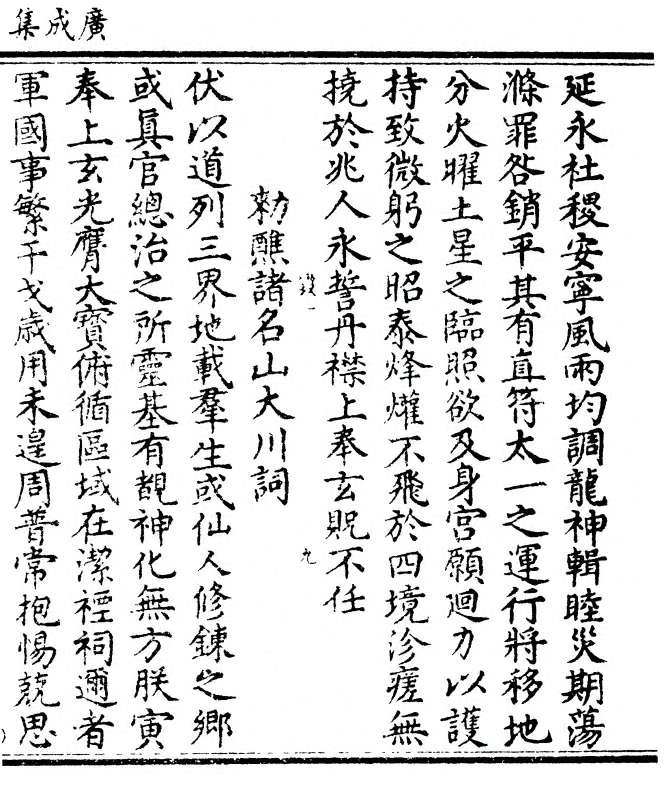 廣成集
延永社稷安寧風雨均調龍神輯睦災期蕩
滌罪咎銷平其有直符太一之運行將移地
分火曜土星之臨照欲及身宮願迴力以護
持致微躬之昭泰烽爟不飛於四境沴瘥無
撓於兆人永誓丹襟上奉玄貺不任
九
勑醮諸名山大川詞
伏以道列三界地載羣生或仙人修鍊之鄉
或眞官總治之所靈基有覩神化無方朕寅
奉上玄光膺大寶俯循區域在潔禋祠邇者
軍國事繁干戈歲用未遑周普常抱惕兢思